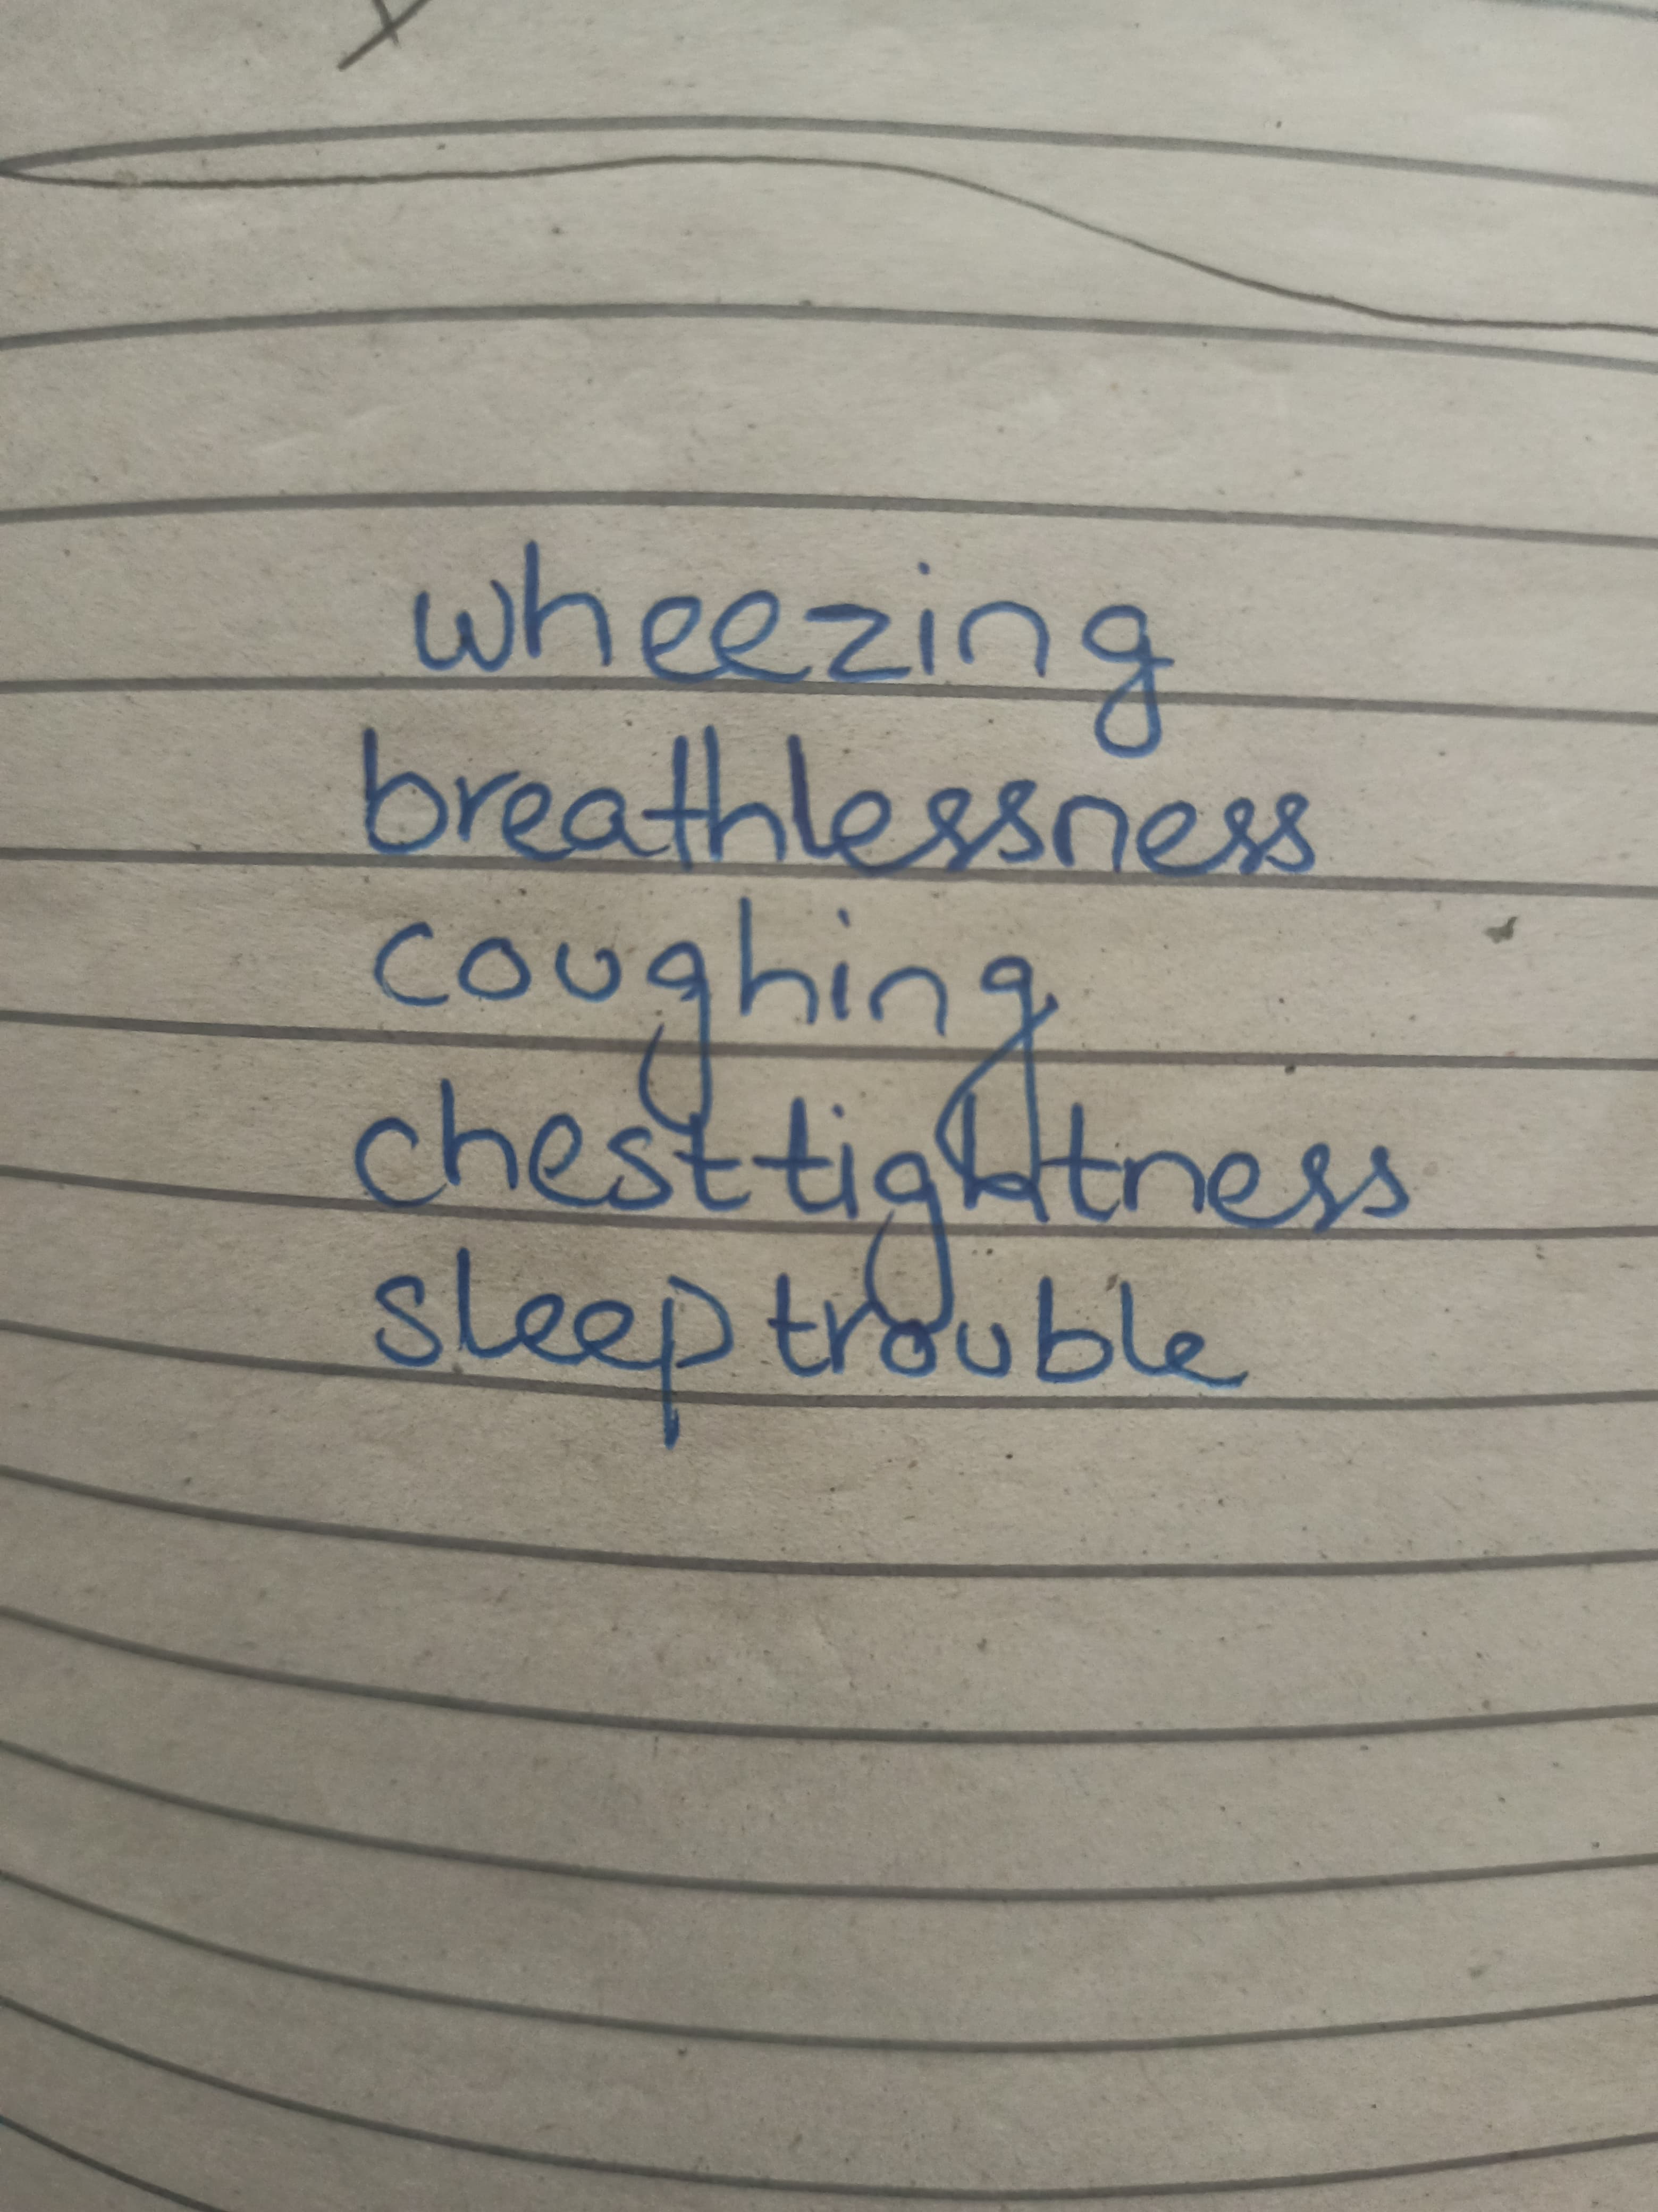 wheezing
breathlessness
coughing
chest tightness
sleep trouble